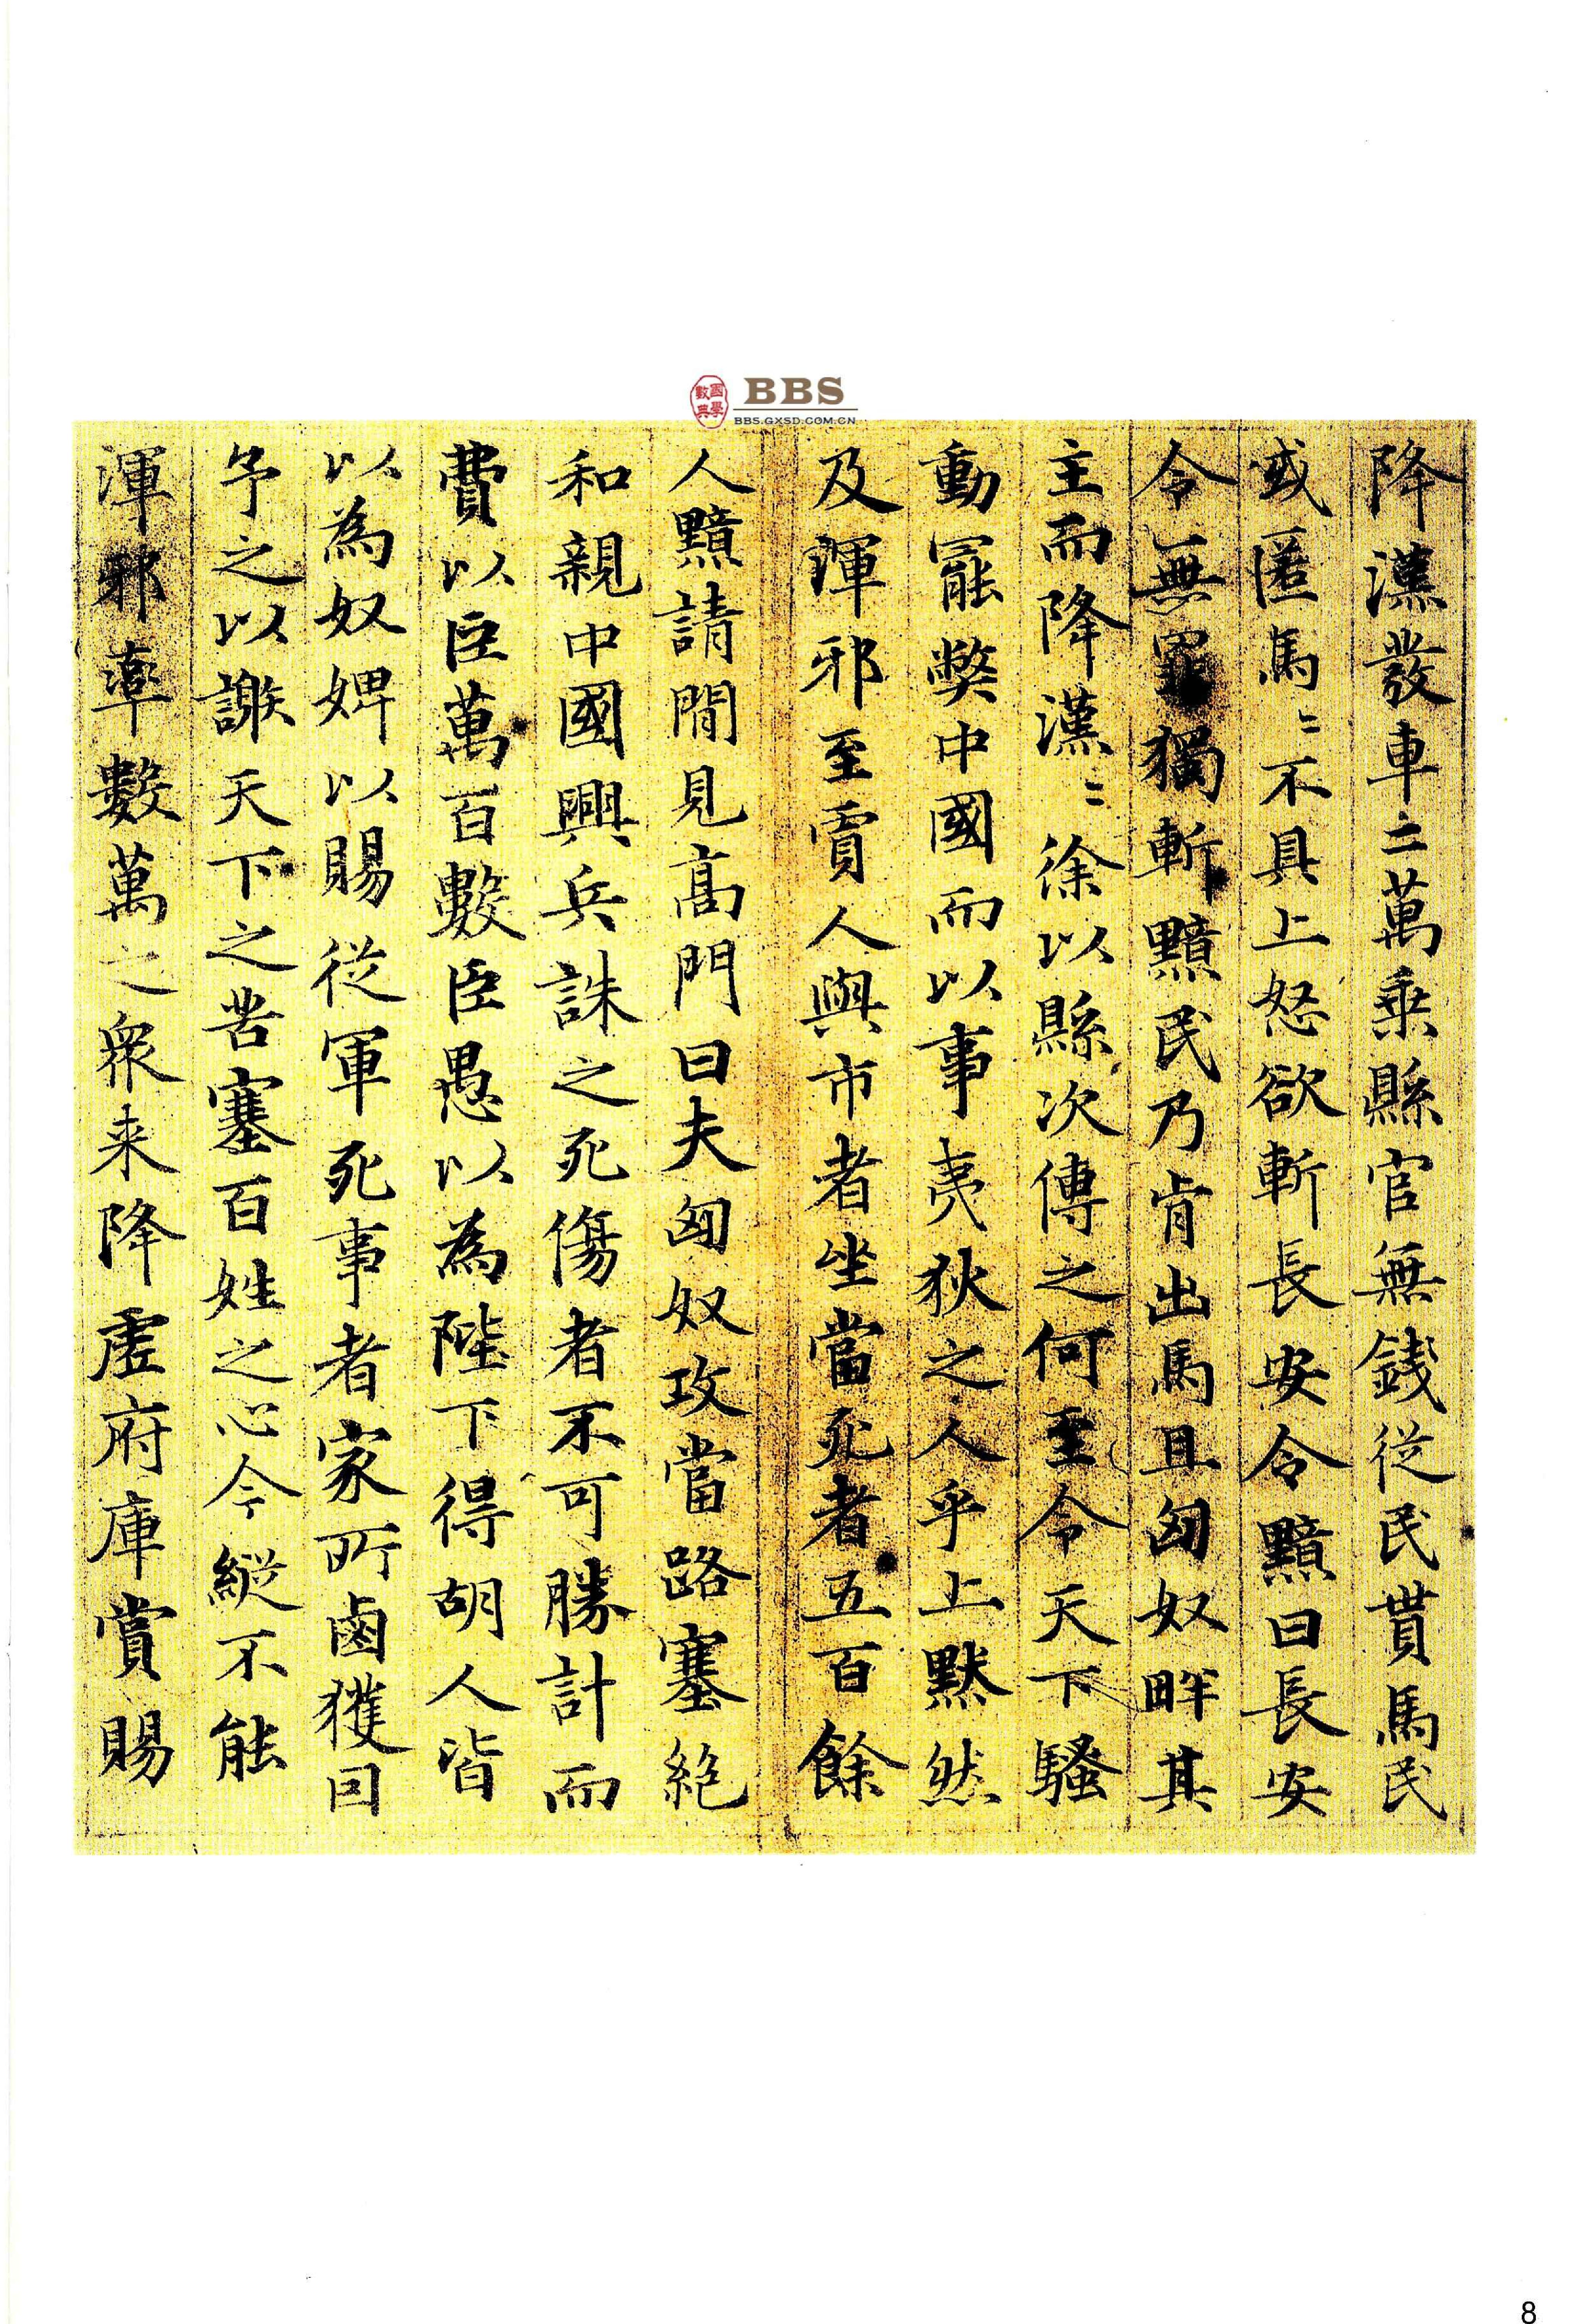 國學數典
BBS
BBS.GXSD.COM.CN
降漢發車二萬乘縣官無錢從民貰馬民
或匿馬〻不具上怒欲斬長安令黯曰長安
令無罪獨斬黯民乃肯出馬且匈奴畔其
主而降漢〻徐以縣次傳之何至令天下騷
動罷弊中國而以事夷狄之人乎上默然
及渾邪至賈人與市者坐當死者五百餘
人黯請閒見高門曰夫匈奴攻當路塞絕
和親中國興兵誅之死傷者不可勝計而
費以臣萬百數臣愚以為陛下得胡人皆
以為奴婢以賜從軍死事者家所鹵獲因
予之以謝天下之苦塞百姓之心今縱不能
渾邪率數萬之衆来降虛府庫賞賜
8